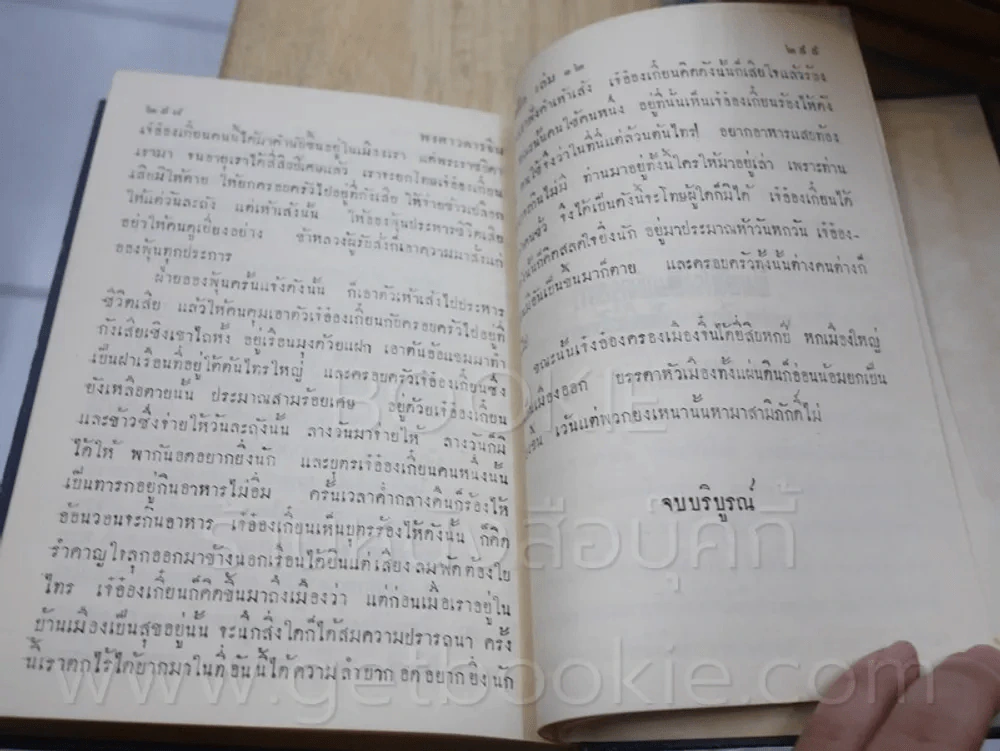 ๒๙๘ พงศาวดารจีน
เจ๋อ๋องเกี๋ยนคนนี้ได้มาคำนับขึ้นอยู่ในเมืองเรา แต่พระราชบิดา
เรามา จนอายุเราได้สี่สิบเศษแล้ว เราจะยกโทษเจ๋อ๋องเกี๋ยน
เสียมิให้ตาย ให้ยกครอบครัวไปอยู่ที่กังเสีย ให้จ่ายข้าวเปลือก
ให้แต่วันละถัง แต่เห้าเส็งนั้น ให้อองหุ้นประหารชีวิตเสีย
อย่าให้คนดูเยี่ยงอย่าง ข้าหลวงผู้รับสั่งก็เอาความมาสั่งแก่
อองหุ้นทุกประการ
ฝ่ายอองหุ้นครั้นแจ้งดังนั้น ก็เอาตัวเห้าเส็งไปประหาร
ชีวิตเสีย แล้วให้คนคุมเอาตัวเจ๋อ๋องเกี๋ยนกับครอบครัวไปอยู่ที่
กังเสียเชิงเขาไถหัง อยู่เรือนมุงด้วยแฝก เอาต้นอ้อแขมมาทำ
เป็นฝาเรือนที่อยู่ใต้ต้นไทรใหญ่ และครอบครัวเจ๋อ๋องเกี๋ยนซึ่ง
ยังเหลือตายนั้น ประมาณสามร้อยเศษ อยู่ด้วยเจ๋อ๋องเกี๋ยน
และข้าวซึ่งจ่ายให้วันละถังนั้น ลางวันมาจ่ายให้ ลางวันก็มิ
ได้ให้ พากันอดอยากยิ่งนัก และบุตรเจ๋อ๋องเกี๋ยนคนหนึ่งนั้น
เป็นทารกอยู่กินอาหารไม่อิ่ม ครั้นเวลาค่ำกลางคืนก็ร้องไห้
อ้อนวอนจะกินอาหาร เจ๋อ๋องเกี๋ยนเห็นบุตรร้องไห้ดังนั้น ก็คิด
รำคาญใจลุกออกมาข้างนอกเรือนได้ยินแต่เสียงลมพัดต้องใบ
ไทร เจ๋อ๋องเกี๋ยนก็คิดขึ้นมาถึงเมืองว่า แต่ก่อนเมื่อเราอยู่ใน
บ้านเมืองเป็นสุขอยู่นั้น จะนึกสิ่งใดก็ได้สมความปรารถนา ครั้ง
นี้เราตกไร้ได้ยากมาในที่อันนี้ได้ความลำบากอดอยากยิ่งนัก
เล่ม ๑๒ ๒๙๙
ฟังคำเห้าเส็ง เจ๋อ๋องเกี๋ยนคิดดังนั้นก็เสียใจแล้วร้อง
นั้นคนใช้คนหนึ่ง อยู่ที่นั้นเห็นเจ๋อ๋องเกี๋ยนร้องไห้ดัง
ใช้จึงว่าในที่นี้แต่ล้วนต้นไทร อยากอาหารแสบท้อง
กินไม่มี ท่านมาอยู่ทั้งนี้ใครให้มาอยู่เล่า เพราะท่าน
คนชั่ว จึงได้เป็นดังนี้จะโทษผู้ใดก็มิได้ เจ๋อ๋องเกี๋ยนได้
นั้นก็คิดสลดใจยิ่งนัก อยู่มาประมาณห้าวันหกวัน เจ๋อ๋อง-
เป็นขึ้นมาก็ตาย และครอบครัวทั้งนั้นต่างคนต่างก็
ขณะนั้นเจ๋งอ๋องครองเมืองจิ๋นได้ยี่สิบหกปี หกเมืองใหญ่
เมืองออก บรรดาหัวเมืองทั้งแผ่นดินก็อ่อนน้อมยกเป็น
เว้นแต่พวกยงเหนานั้นหามาสามิภักดิ์ไม่
จบบริบูรณ์
BOOKIE
ร้านหนังสือบุ๊คกี้
www.getbookie.com